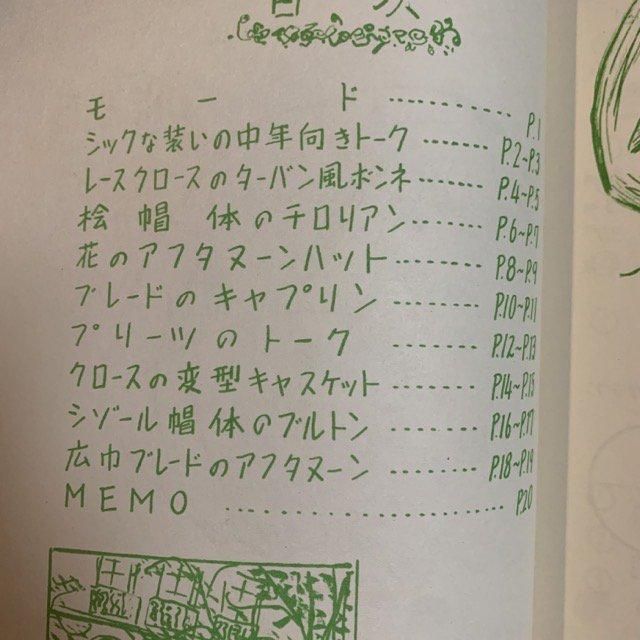 目次
モード ………… P.1
シックな装いの中年向きトーク ……… P.2~P.3
レースクロースのターバン風ボンネ ……… P.4~P.5
桧帽体のチロリアン ……… P.6~P.7
花のアフタヌーンハット ……… P.8~P.9
ブレードのキャプリン ……… P.10~P.11
プリーツのトーク ……… P.12~P.13
クロースの変型キャスケット ……… P.14~P.15
シゾール帽体のブルトン ……… P.16~P.17
広巾ブレードのアフタヌーン ……… P.18~P.19
MEMO ………… P.20